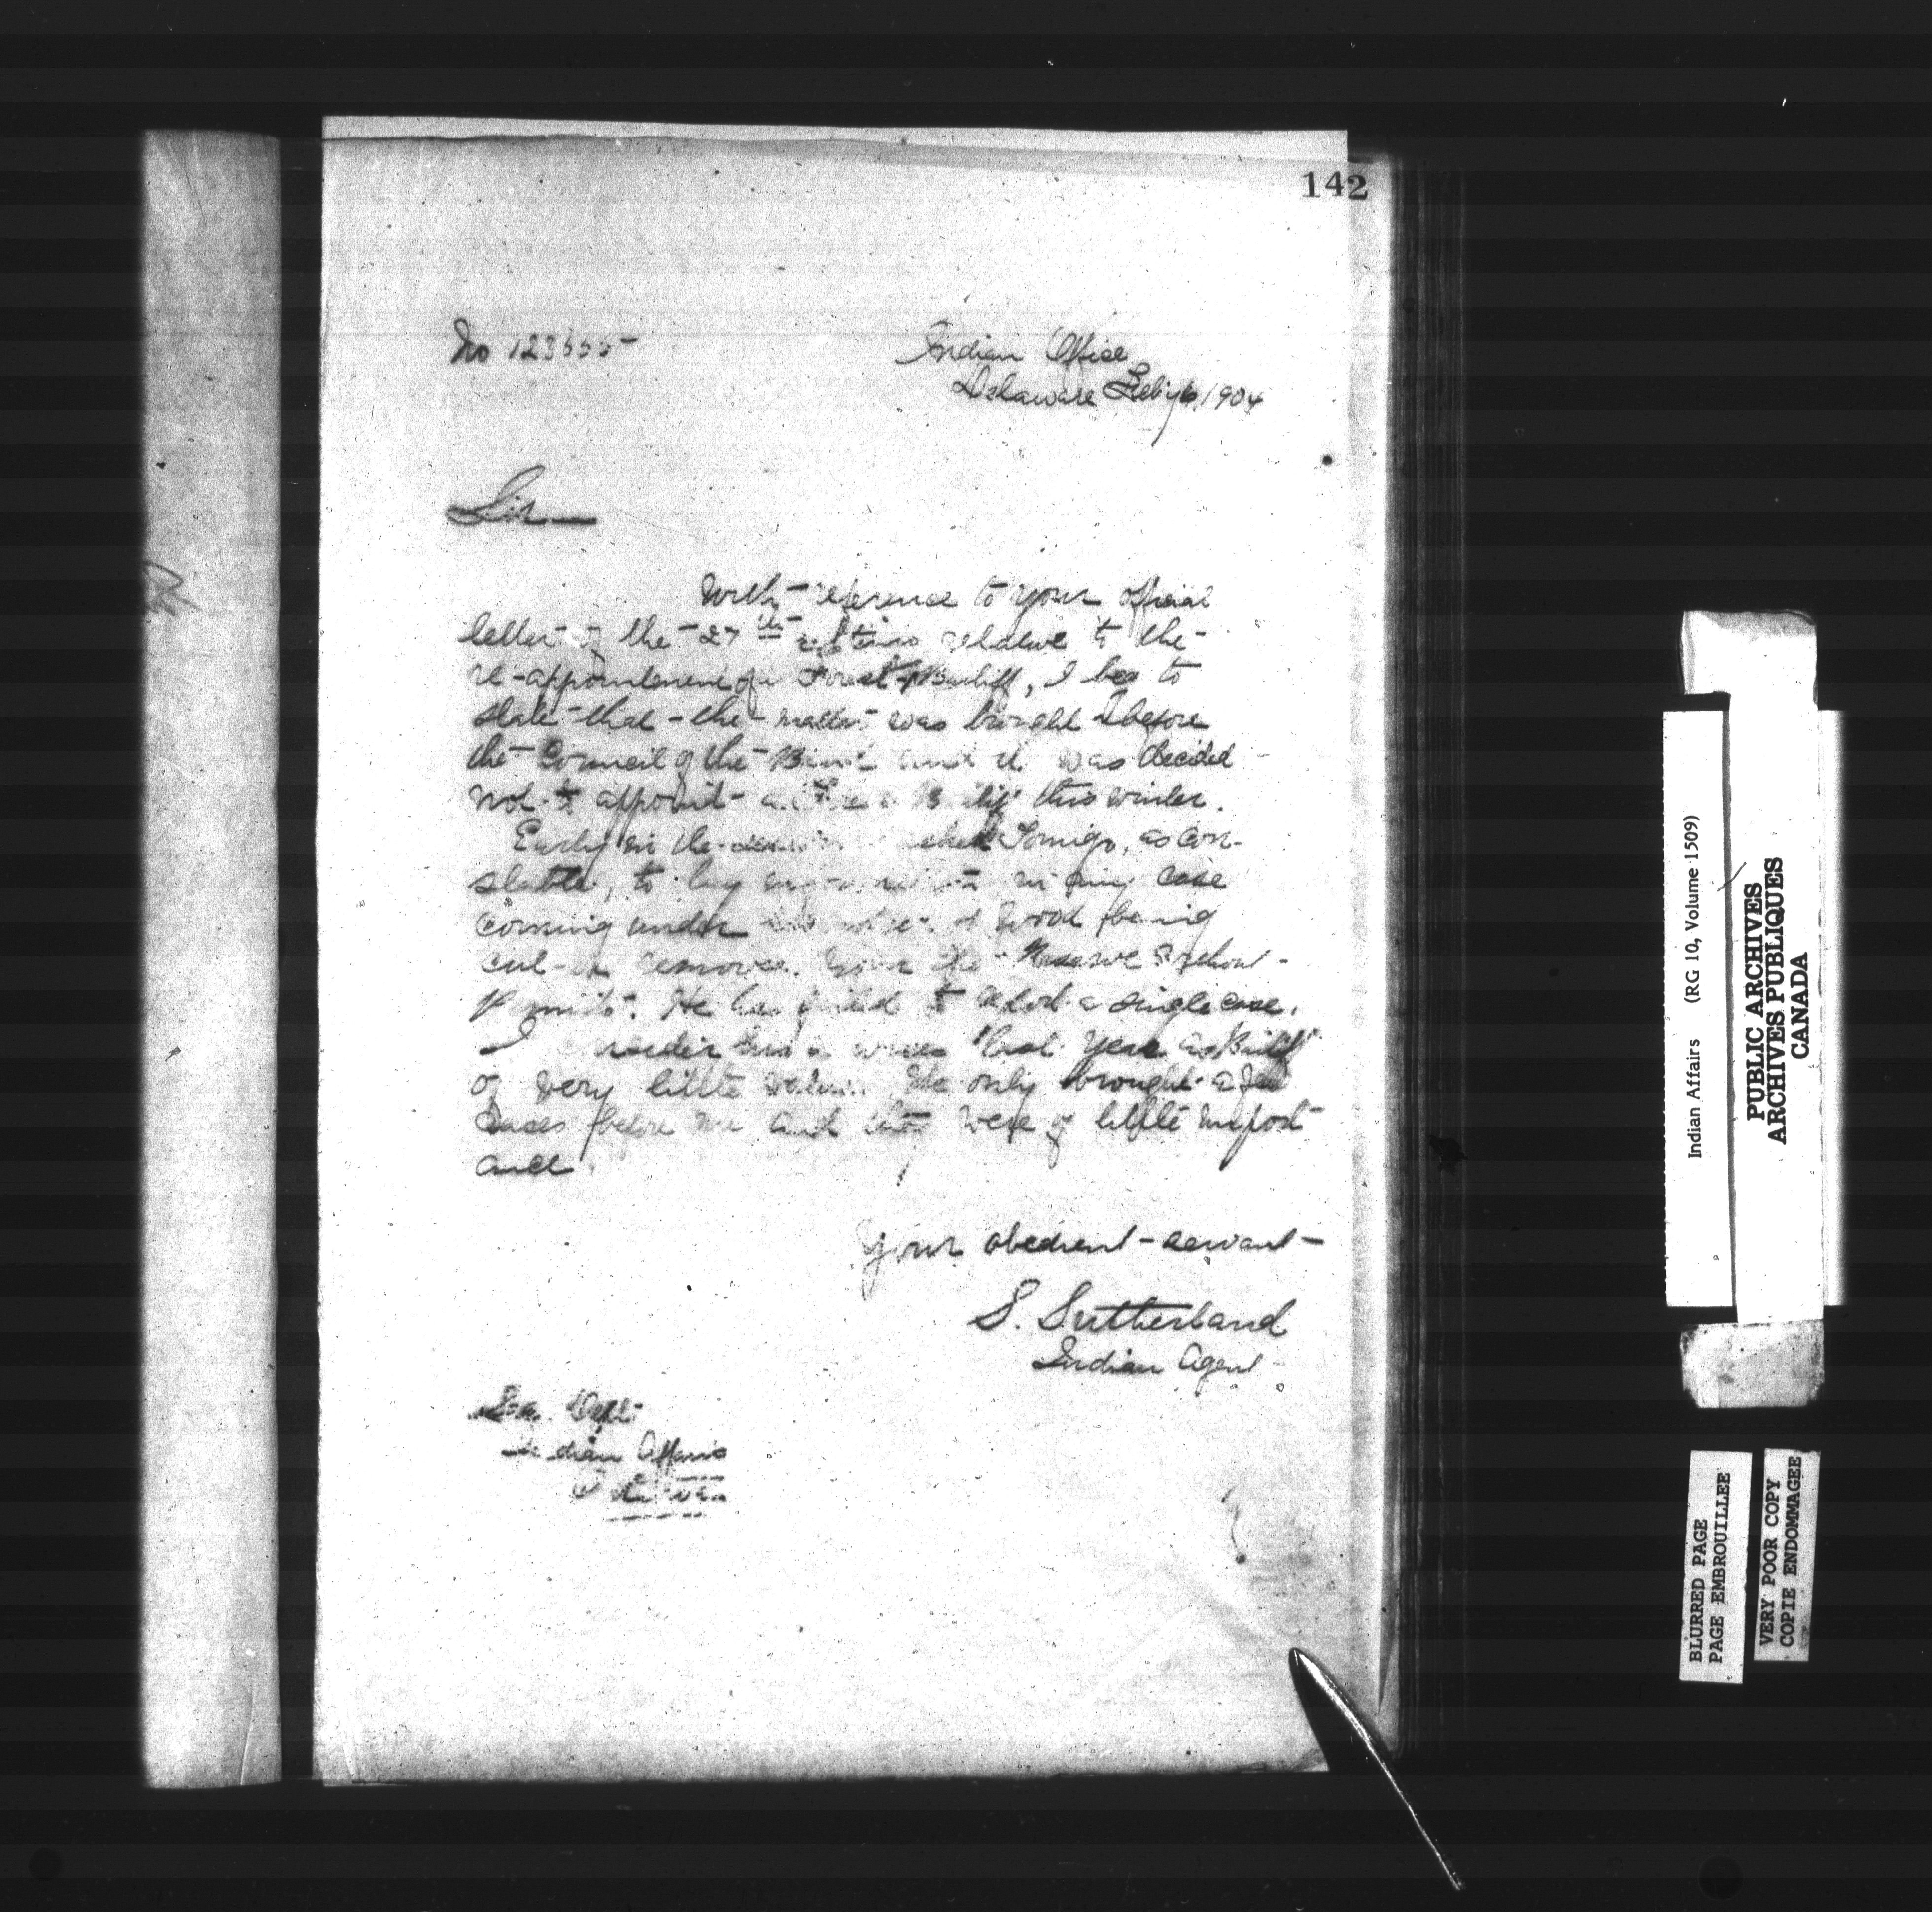 142
No 123555
Indian Office
Delaware Feby 6, 1904
Sir
With reference to your official
letter of the 27th relative to the
re-appointment of a Forest Bailiff, I beg to
state that the matter was brought before
the Council of the Band and it was decided
not to appoint a Bailiff this winter.
Early in the Tomigo, as con-
stable, to lay in any case
coming under of wood being
cut or removed from the Reserve without
Permits. He has failed to report a single case.
I consider his services last year as Bailiff
of very little value. He only brought a few
cases before me and they were of little import
ance
Your obedient servant
S. Sutherland
Indian Agent
Sec. Dept
Indian Affairs
Ottawa
Indian Affairs (RG 10, Volume 1509)
PUBLIC ARCHIVES
ARCHIVES PUBLIQUES
CANADA
BLURRED PAGE
PAGE EMBROUILLEE
VERY POOR COPY
COPIE ENDOMMAGEE